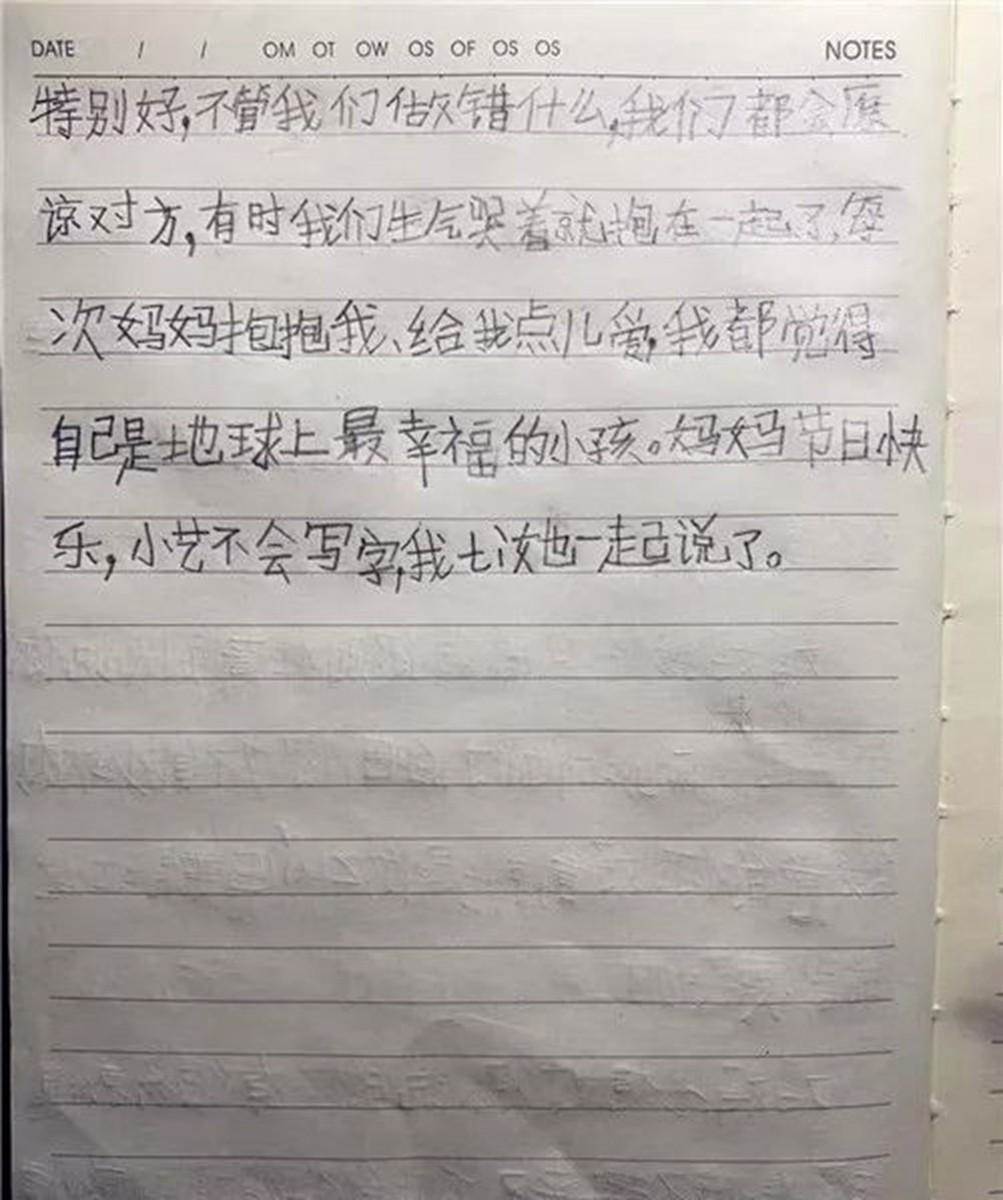 DATE / / OM OT OW OS OF OS OS NOTES
特别好,不管我们做错什么,我们都会原
谅对方,有时我们生气哭着就抱在一起了,每
次妈妈抱抱我、给我点儿爱,我都觉得
自己是地球上最幸福的小孩。妈妈节日快
乐,小艺不会写字,我七汝也一起说了。